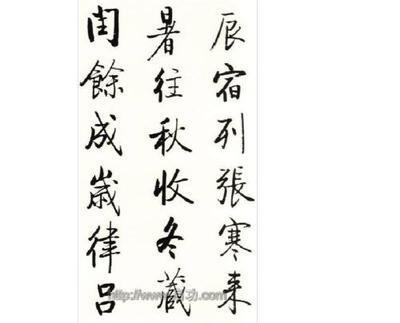 辰宿列張寒来
暑往秋收冬藏
閏餘成歲律呂